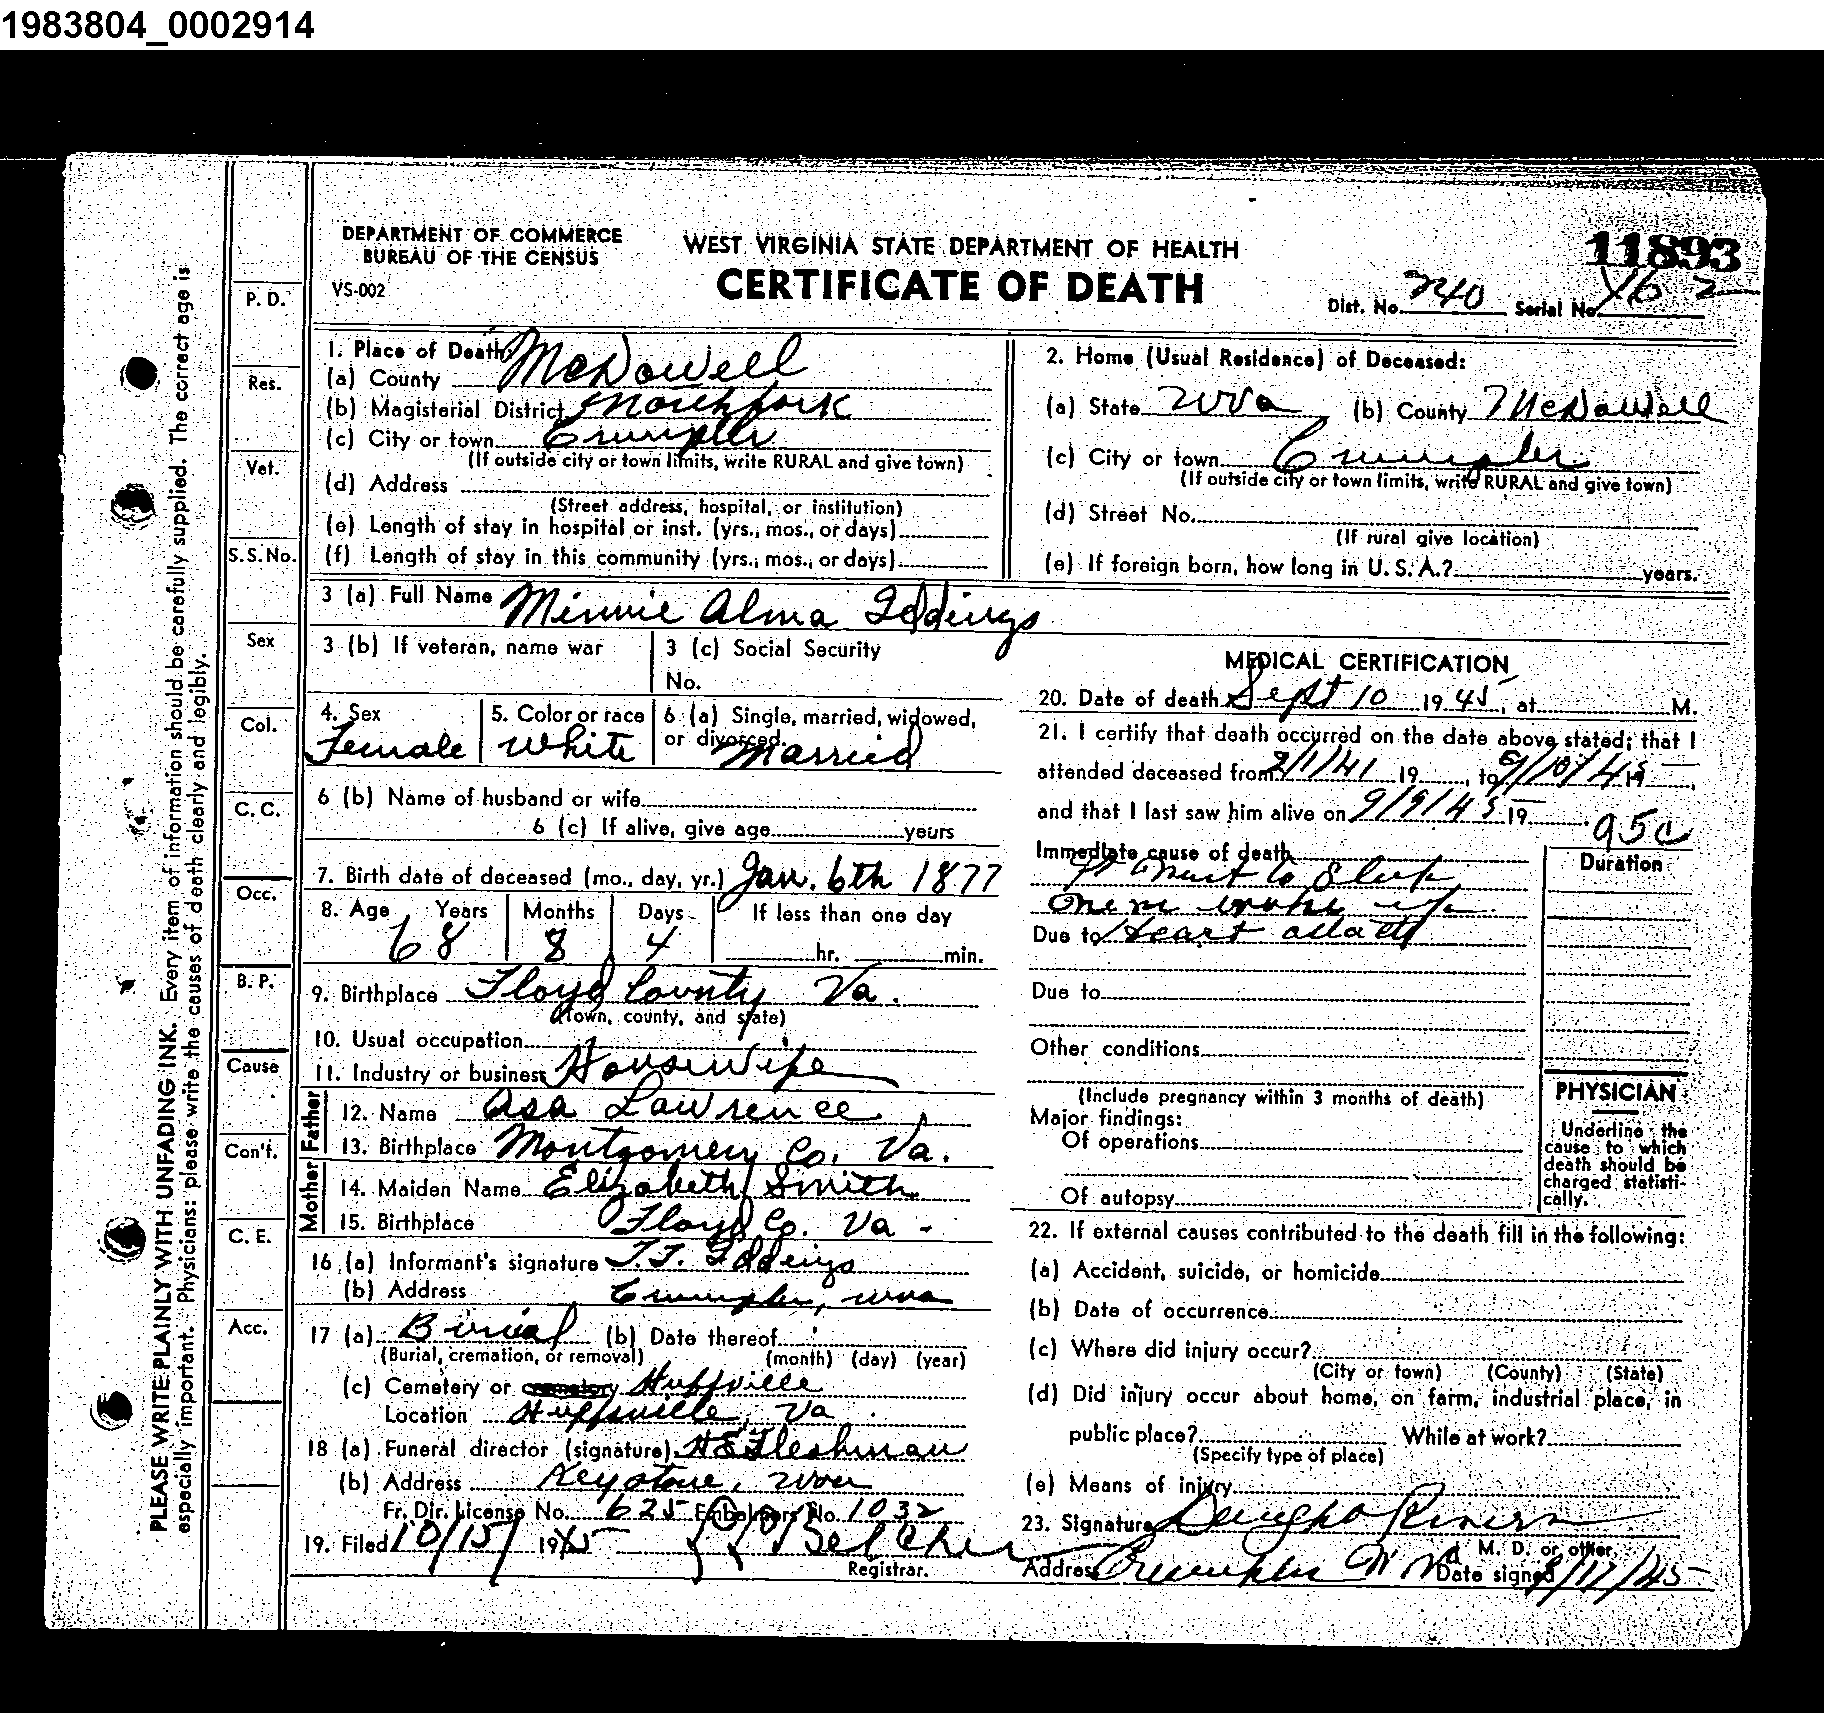 1983804_0002914
DEPARTMENT OF COMMERCE
BUREAU OF THE CENSUS
VS-002
WEST VIRGINIA STATE DEPARTMENT OF HEALTH
CERTIFICATE OF DEATH
11893
Dist. No. 240 Serial No. 162
1. Place of Death:
(a) County McDowell
(b) Magisterial District Northfork
(c) City or town Crumpler
(If outside city or town limits, write RURAL and give town)
(d) Address
(Street address, hospital, or institution)
(e) Length of stay in hospital or inst. (yrs., mos., or days)
(f) Length of stay in this community (yrs., mos., or days)
2. Home (Usual Residence) of Deceased:
(a) State WVa (b) County McDowell
(c) City or town Crumpler
(If outside city or town limits, write RURAL and give town)
(d) Street No.
(If rural give location)
(e) If foreign born, how long in U. S. A.? years.
3 (a) Full Name Minnie Alma Iddings
3 (b) If veteran, name war
3 (c) Social Security
No.
4. Sex Female
5. Color or race White
6 (a) Single, married, widowed,
or divorced. Married
6 (b) Name of husband or wife
6 (c) If alive, give age years
7. Birth date of deceased (mo., day, yr.) Jan. 6th 1877
8. Age Years Months Days If less than one day
68 8 4 hr. min.
9. Birthplace Floyd County Va.
(Town, county, and state)
10. Usual occupation
11. Industry or business Housewife
Father
12. Name Asa Lawrence
13. Birthplace Montgomery Co. Va.
Mother
14. Maiden Name Elizabeth Smith
15. Birthplace Floyd Co. Va -
16 (a) Informant's signature T.T. Iddings
(b) Address Crumpler, WVa
17 (a) Burial (b) Date thereof
(Burial, cremation, or removal) (month) (day) (year)
(c) Cemetery or Huffville
Location Huffsville, Va
18 (a) Funeral director (signature) H E Fleshman
(b) Address Keystone, WVa
Fr. Dir. License No. 625 Embalmers No. 1032
19. Filed 10/15/ 1945 Belcher
Registrar.
MEDICAL CERTIFICATION
20. Date of death Sept 10 1945, at M.
21. I certify that death occurred on the date above stated; that I
attended deceased from 2/1/41 19 , to 9/10/45
and that I last saw him alive on 9/9/45 19
95c
Immediate cause of death Duration
went to sleep
woke up
Due to Heart attack
Due to
Other conditions
(Include pregnancy within 3 months of death)
Major findings:
Of operations
Of autopsy
PHYSICIAN
Underline the
cause to which
death should be
charged statisti-
cally.
22. If external causes contributed to the death fill in the following:
(a) Accident, suicide, or homicide
(b) Date of occurrence
(c) Where did injury occur?
(City or town) (County) (State)
(d) Did injury occur about home, on farm, industrial place, in
public place? While at work?
(Specify type of place)
(e) Means of injury
23. Signature
M. D. or other
Address Crumpler W Va Date signed 9/17/45
P. D.
Res.
Vet.
S. S. No.
Sex
Col.
C. C.
Occ.
B. P.
Cause
Con't.
C. E.
Acc.
PLEASE WRITE PLAINLY WITH UNFADING INK. Every item of information should be carefully supplied. The correct age is
especially important. Physicians: please write the causes of death clearly and legibly.